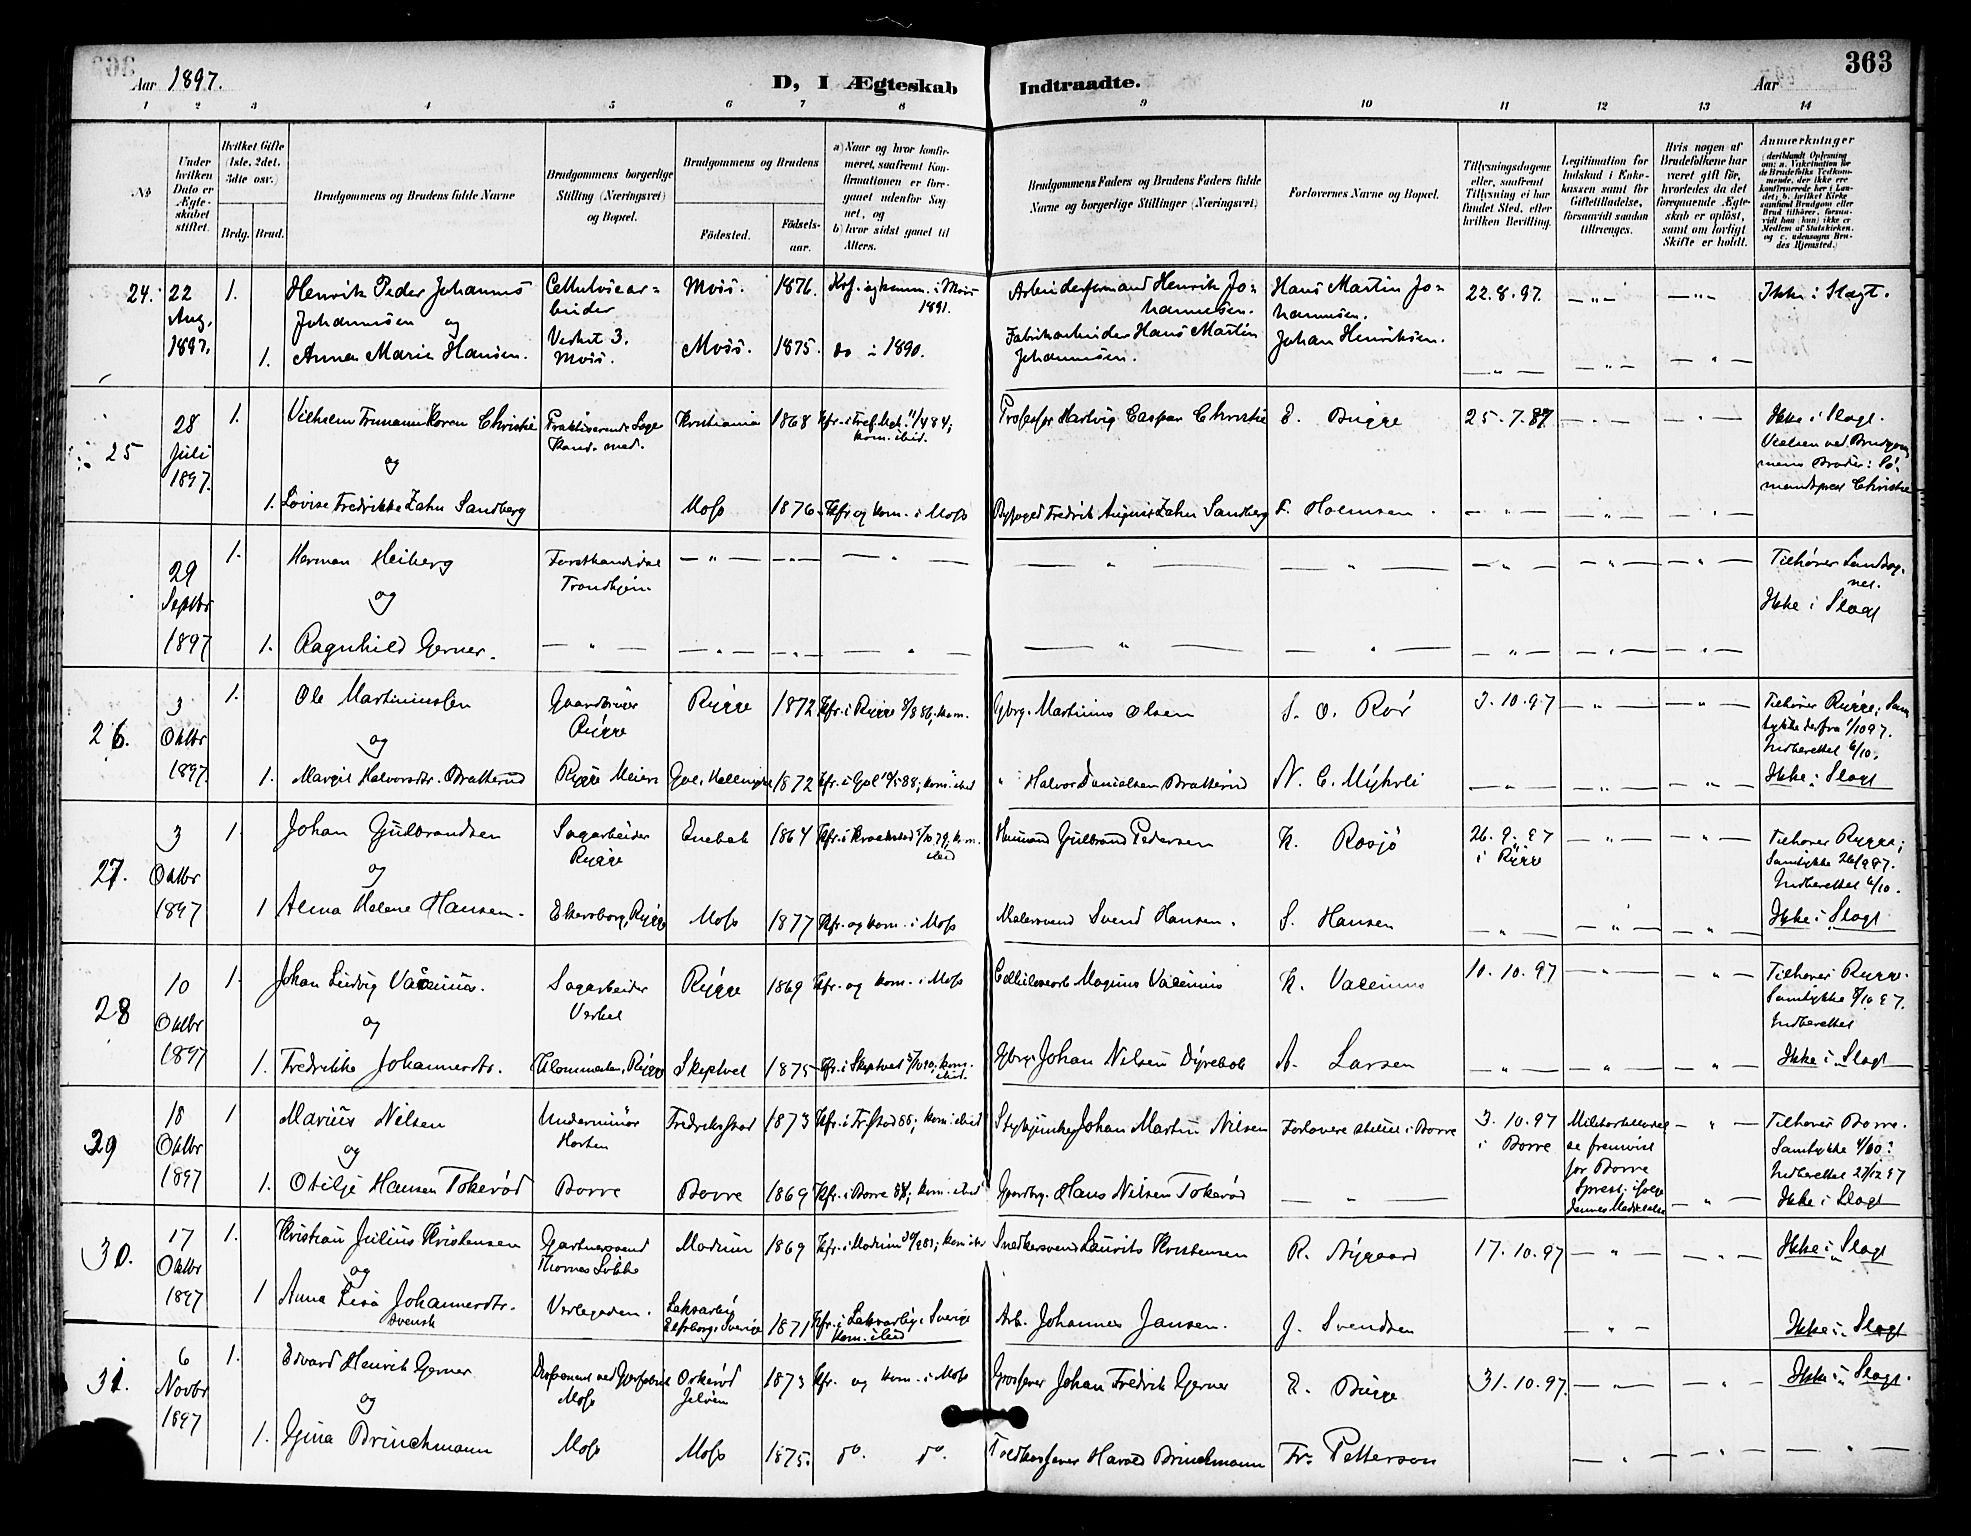 363
Aar 1897.
D, I Ægteskab Indtraadte.
Aar
1 2 3 4 5 6 7 8 9 10 11 12 13 14
No
Under hvilken Dato er Ægteskabet stiftet.
Hvilket Gifte (1ste, 2det, 3die osv.)
Brdg. Brud.
Brudgommens og Brudens fulde Navne
Brudgommens borgerlige Stilling (Næringsvei) og Bopæl.
Brudgommens og Brudens
Fødested.
Fødselsaar.
a) Naar og hvor konfirmeret, saafremt Konfirmationen er foregaaet udenfor Sognet, og
b) hvor sidst gaaet til Alters.
Brudgommens Faders og Brudens Faders fulde Navne og borgerlige Stillinger (Næringsvei)
Forlovernes Navne og Bopæl.
Tillysningsdagene eller, saafremt Tillysning ei har fundet Sted, efter hvilken Bevilling.
Legitimation for Indskud i Enkekassen samt for Giftetilladelse, forsaavidt saadan tiltrænges.
Hvis nogen af Brudefolkene har været gift før, hvorledes da det foregaaende Ægteskab er opløst, samt om lovligt Skifte er holdt.
Anmærkninger
24. 22 Aug. 1897.
1. Henrik Peder Johannes Johannesen og
Cellulosearbeider Verket 3. Moss.
Moss. 1876. Kf. og komm. i Moss 1891.
Arbeidsformand Henrik Johannesen.
Hans Martin Johannesen.
22.8.97. — " — — " — Ikke i Slægt.
1. Anna Marie Hansen.
Moss. 1875. do i 1890.
Fabrikarbeider Hans Martin Johannesen.
Johan Henriksen.
— " — — " — — " —
25 28 Juli 1897.
1. Christie
og
Praktiserende Læge Kand. med.
Kristiania 1868
Professor Hartvig Caspar Christie
E. Bugge
25.7.97 — " — — " —
Ikke i Slægt.
Vielsen ved Brudgommens Broder: Sømandsprest Christie
1. Lovise Fredrikke Zahn Sandberg
Moss 1876. Kfr. og kom. i Moss
Byfoged Fredrik August Zahn Sandberg
F. Holmsen.
— " — — " — — " —
29 Septbr 1897
1. Herman Heiberg
og
Forstkandidat Trondhjem.
— " — — " — — " —
Tilhører Landsognet.
Ikke i Slægt
1. Ragnhild Gerner.
— " — — " — — " —
26. 3 Oktbr 1897
1. Ole Martiniussen
og
Gaardbruger Rygge
Rygge 1872 Kfr. i Rygge 86; kom.
Gbrg. Martinius Olsen
S. O. Rør
3.10.97 — " — — " —
Tilhører Rygge; Samtykke derfra 1/10 97.
Indberettet 6/10.
Ikke i Slægt
1. Margit Halvorsdtr. Bratterud
Rygge Meieri
Gol, Hallingdal 1872 Kfr. i Gol 88; kom. ibid
" Halvor Danielsen Bratterud
N. C. Myhrli
— " — — " — — " —
27. 3 Oktbr 1897
1. Johan Gulbrandsen
og
Sagarbeider Rygge
Enebak 1864 Kfr. i Kraakstad 5/10 79; kom. ibid
Husmand Gulbrand Pedersen
K. Rosjø
26.9.97 i Rygge — " — — " —
Tilhører Rygge;
Samtykke 26/9 97.
Indberettet 6/10.
Ikke i Slægt
1 Alma Helene Hansen.
Ekersborg, Rygge
Moss 1877 Kfr. og kom. i Moss
Malersvend Svend Hansen.
S. Hansen
— " — — " — — " —
28 10 Oktbr 1897
1. Johan Ludvig Valenius.
og
Sagarbeider Verket
Rygge 1869 Kfr. og kom. i Moss
Cellulosearb. Magnus Valenius
K. Valenius
10.10.97 — " — — " —
Tilhører Rygge.
Samtykke 8/10 97.
Indberettet
Ikke i Slægt
1. Fredrikke Johannesdtr.
Rygge
Skiptvet 1875 Kfr. i Skiptvet 5/10 90; kom. ibid.
Gbrg. Johan Nilsen Dyrebok
A. Larsen
— " — — " — — " —
29 18 Oktbr 1897
1 Marius Nilsen
og
Underminør Horten
Fredrikstad 1873 Kfr. i Fr.stad 88; kom. ibid
Johan Martin Nilsen
Forlovere stillet i Borre
3.10.97 i Borre
— " —
Tilhører Borre.
Indberettet 27/12 97
Ikke i Slægt
1. Otilje Hansen Tokerød
Borre
Borre 1869 Kfr. i Borre 84; kom. ibid
Gaardbr. Hans Nilsen Tokerød
— " — — " —
30. 17 Oktbr 1897
1. Kristian Julius Kristensen
og
Gartnersvend Thornes Løkke
Modum 1869 Kfr. i Modum 30/9 83; kom. ibid
Snedkersvend Laurits Kristensen
R. Nygaard
17.10.97 — " — — " —
Ikke i Slægt
1 Anna Lisa Johannesdtr. Svensk
Verlegaden.
Laksarby Elfsborg, Sverige 1871 Kfr. i Laksarby i Sverige kom. ibid
Arb. Johannes Jansen.
J. Svendsen
— " —
Ikke i Slægt
31. 6 Novbr 1897
1. Edvard Henrik Gerner
og
Moss
Orkerød Jeløen 1873 Kfr. og kom. i Moss
Grosserer Johan Fredrik Gerner
E. Bugge
31.10.97. — " — — " —
Ikke i Slægt.
1. Gina Brinchmann
Moss
Moss 1875. do. do.
Toldkasserer Harald Brinchmann
Fr. Petterson
— " — — " — — " —